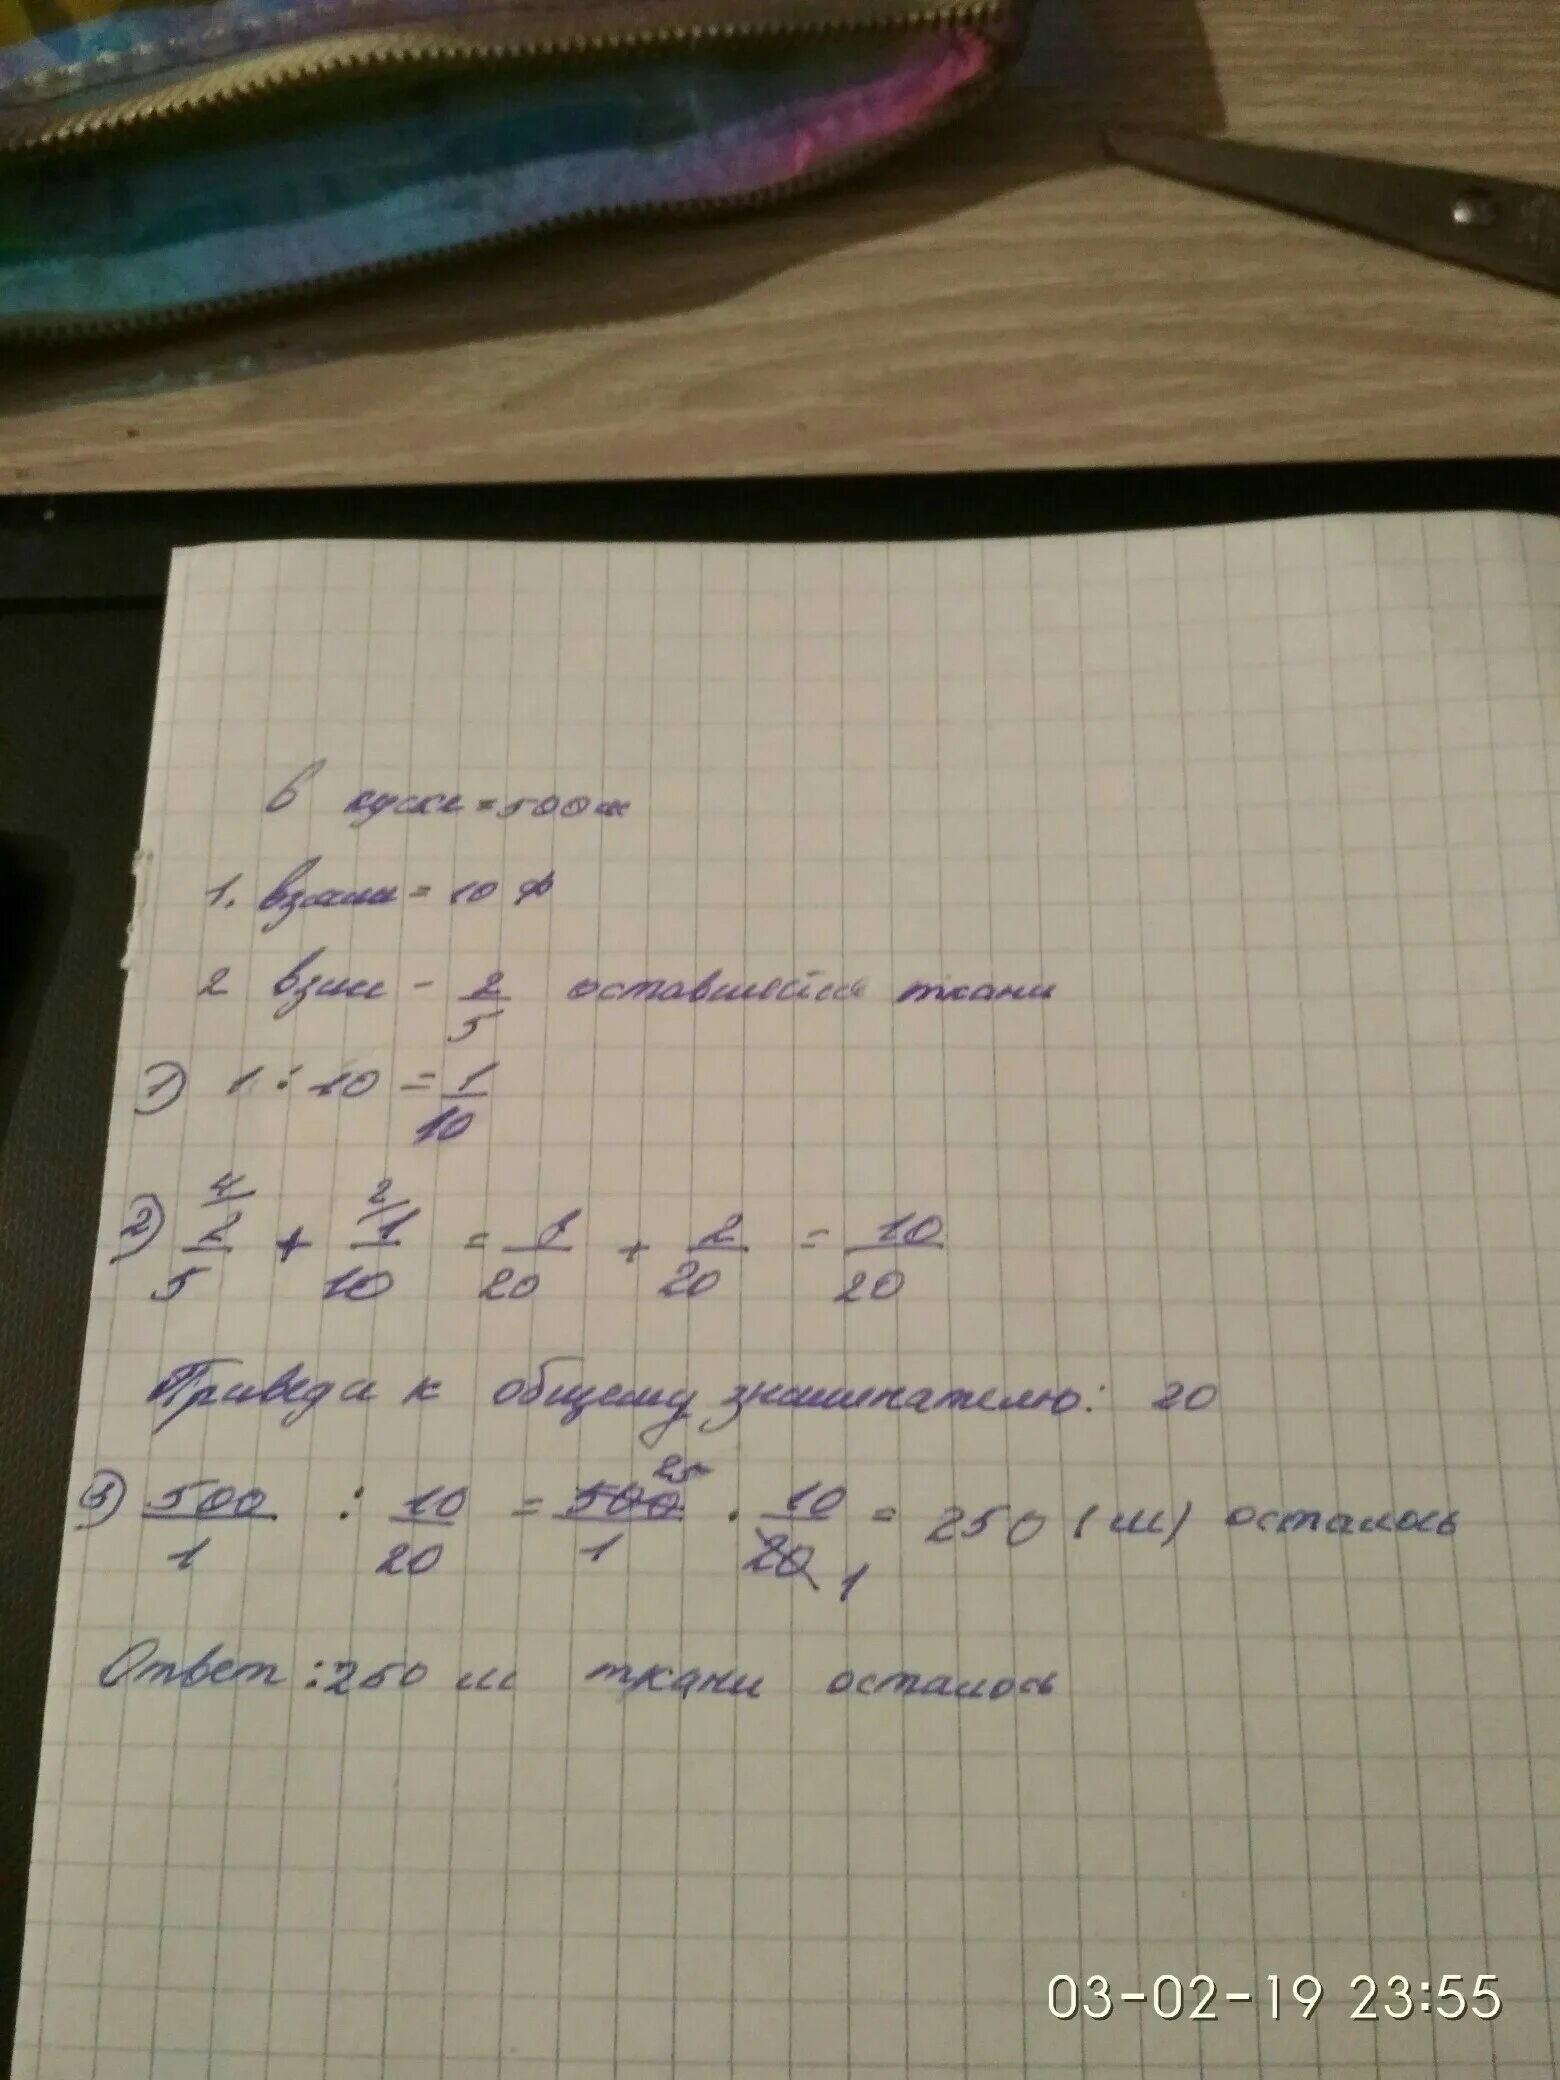 В куске = 500 м
1. взяли = 10 ф
2 взяли - 2/5 оставшейся ткани
1) 1 : 10 = 1/10
2) 4/ 2/5 + 2/ 1/10 = 8/20 + 2/20 = 10/20
Приведи к общему знаменателю: 20
3) 500/1 : 10/20 = 500/1 25 · 10/20 1 = 250 (м) осталось
Ответ: 250 м ткани осталось
03-02-19 23:55